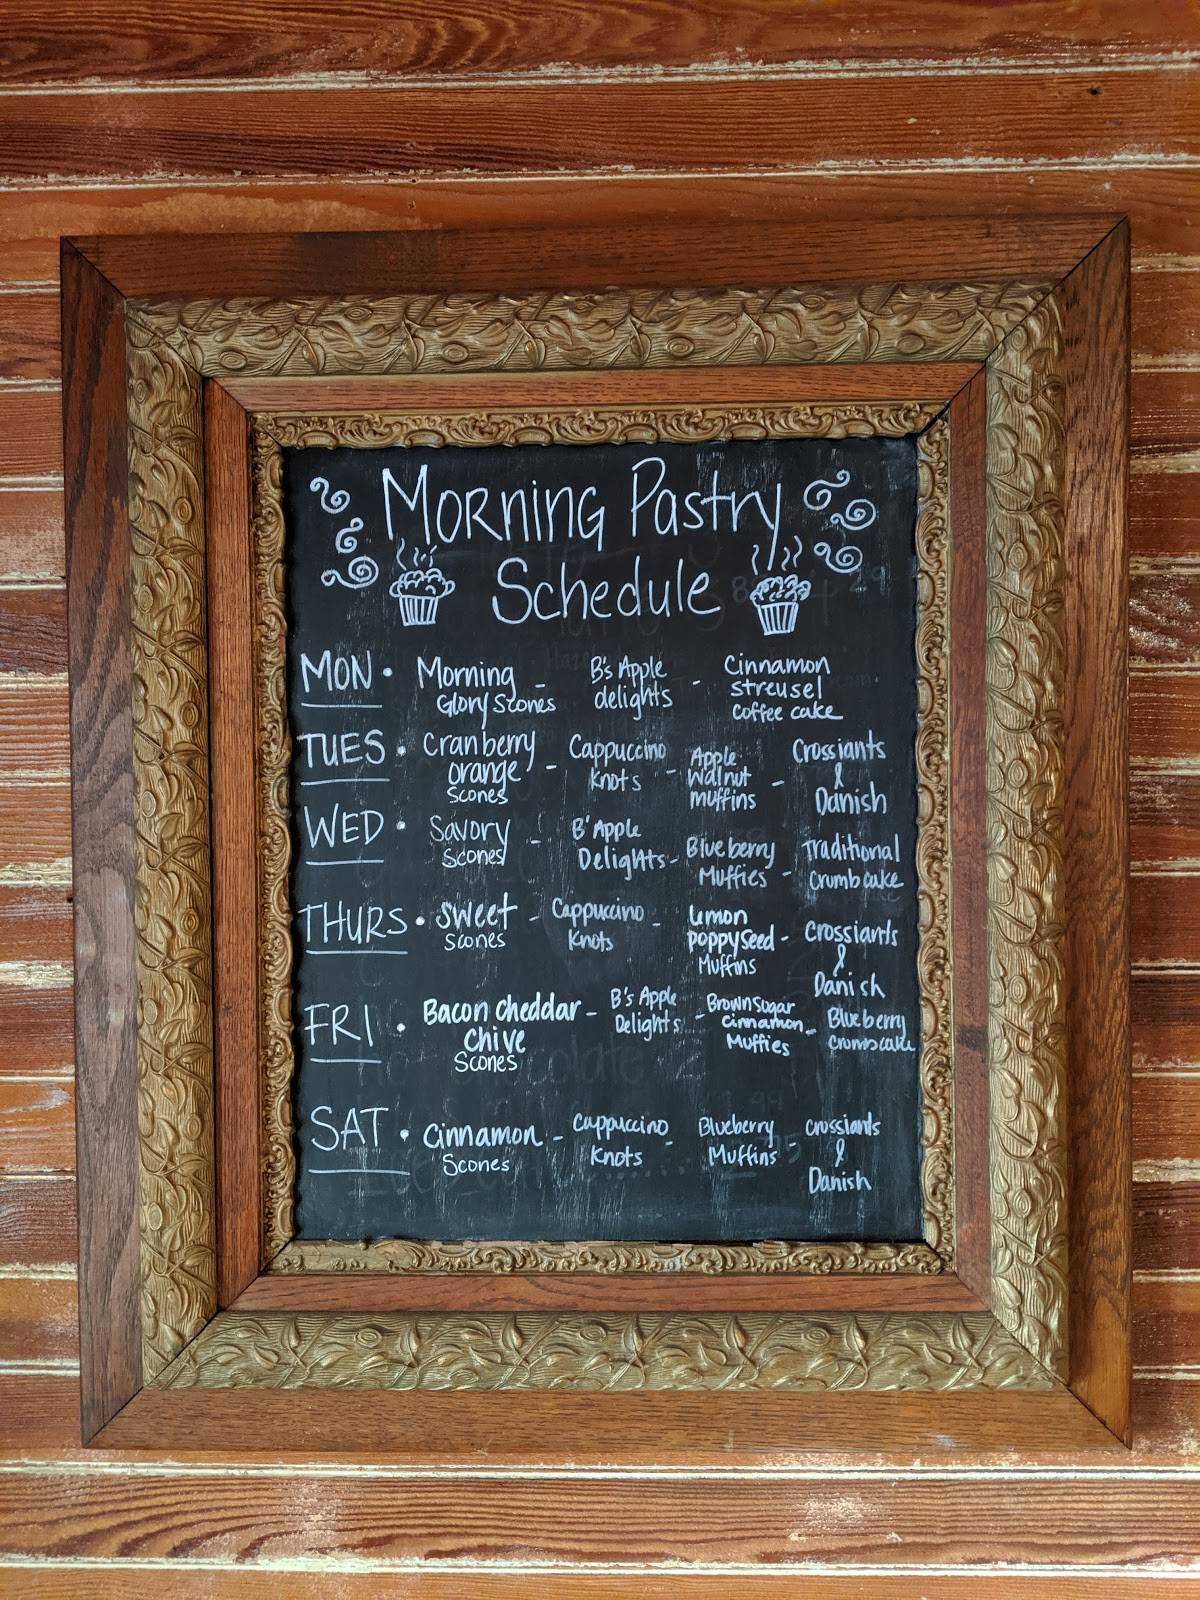 Morning Pastry
Schedule
MON • Morning Glory Scones - B's Apple delights - Cinnamon streusel coffee cake
TUES • Cranberry orange Scones - Cappuccino Knots - Apple Walnut muffins - Crossiants & Danish
WED • Savory Scones - B' Apple Delights - Blueberry Muffies - Traditional Crumbcake
THURS • Sweet Scones - Cappuccino Knots - Lemon poppyseed Muffins - Crossiants & Danish
FRI • Bacon Cheddar Chive Scones - B's Apple Delights - Brownsugar Cinnamon Muffies - Blueberry Crumbcake
SAT • Cinnamon Scones - Cappuccino Knots - Blueberry Muffins - Crossiants & Danish